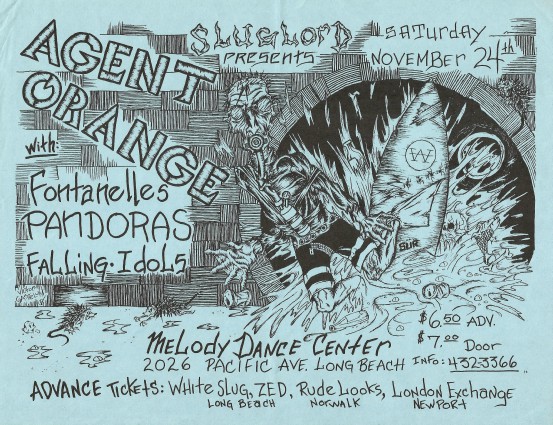 SLUGLORD
PRESENTS
SATURDAY
NOVEMBER 24th
AGENT
ORANGE
with:
Fontanelles
PANDORAS
FALLING·IDOLS
W
SUR
MeLoDy DANCe CeNTer
2026 PACIFIC AVE. LONG BEACH
$6.50 ADV.
$7.00 Door
INFO: 432-3366
ADVANCE TICKETS: WHITE SLUG, ZED, Rude Looks, London Exchange
LONG BeacH NorWALK NEWPORT